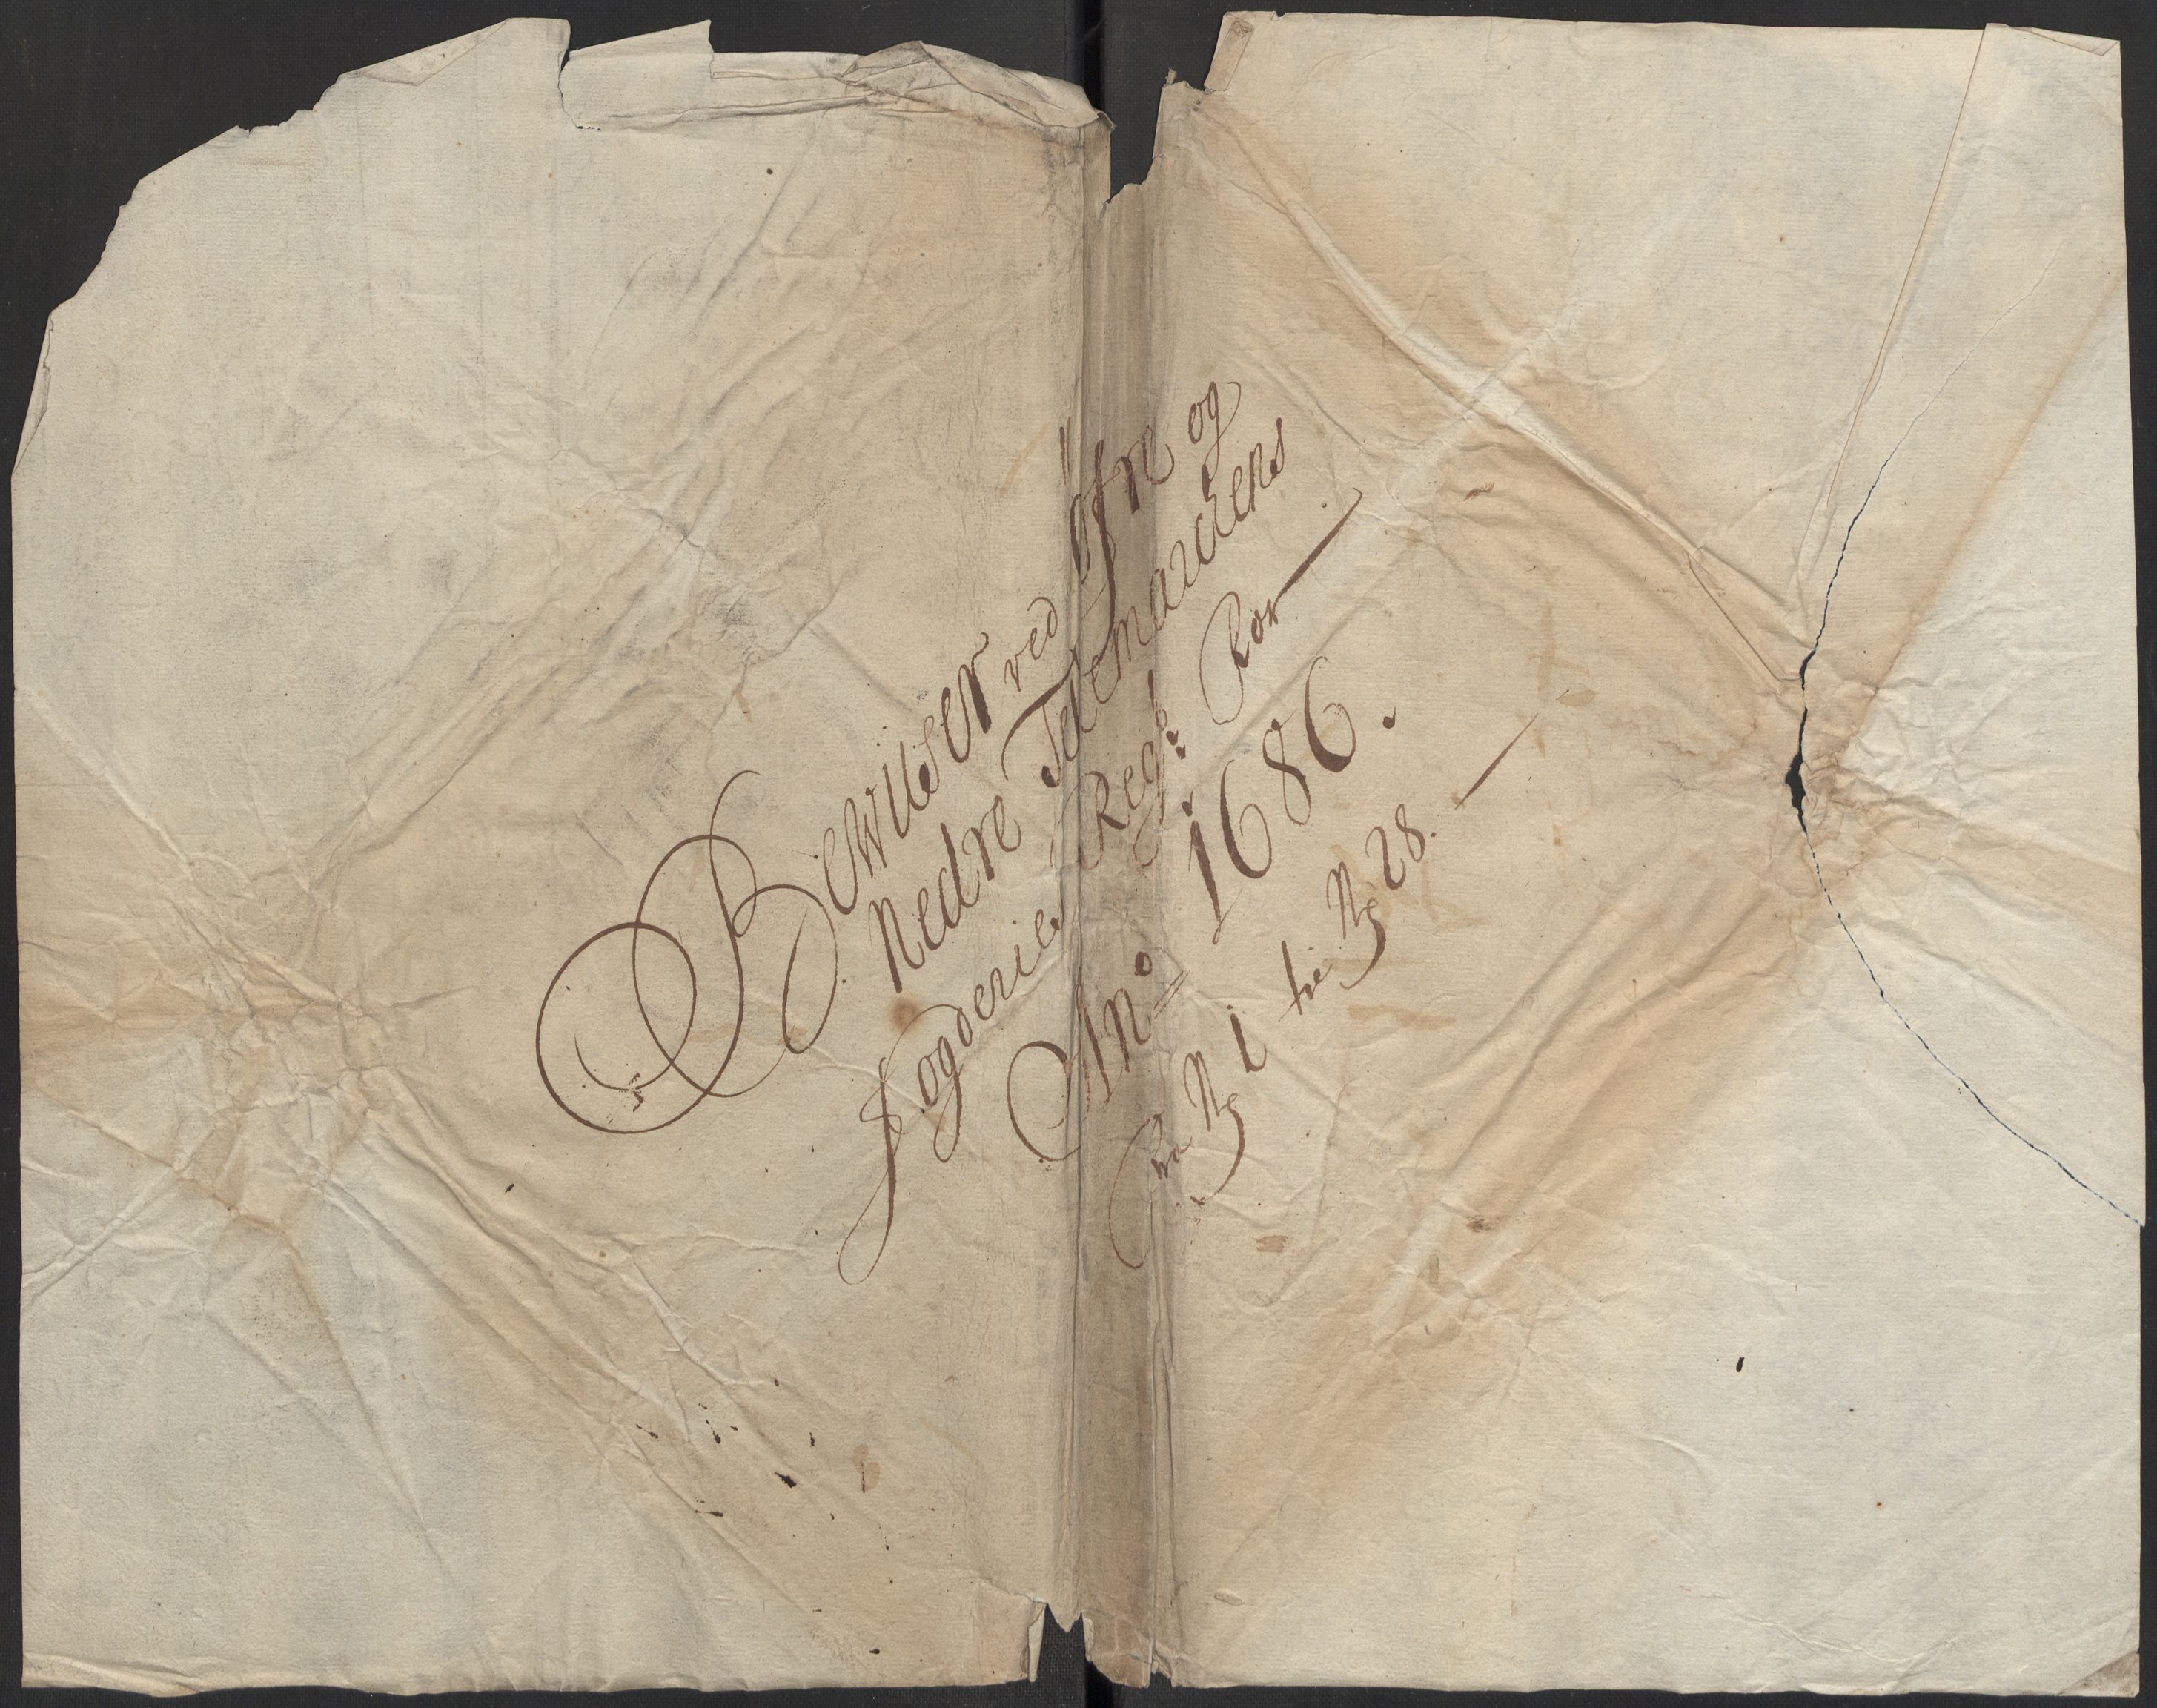 Bewiiser ved Øfre og
Nedre Tellemarckens
Fogderies Regs: for
Ao 1686.
fra No 1 til No 28.